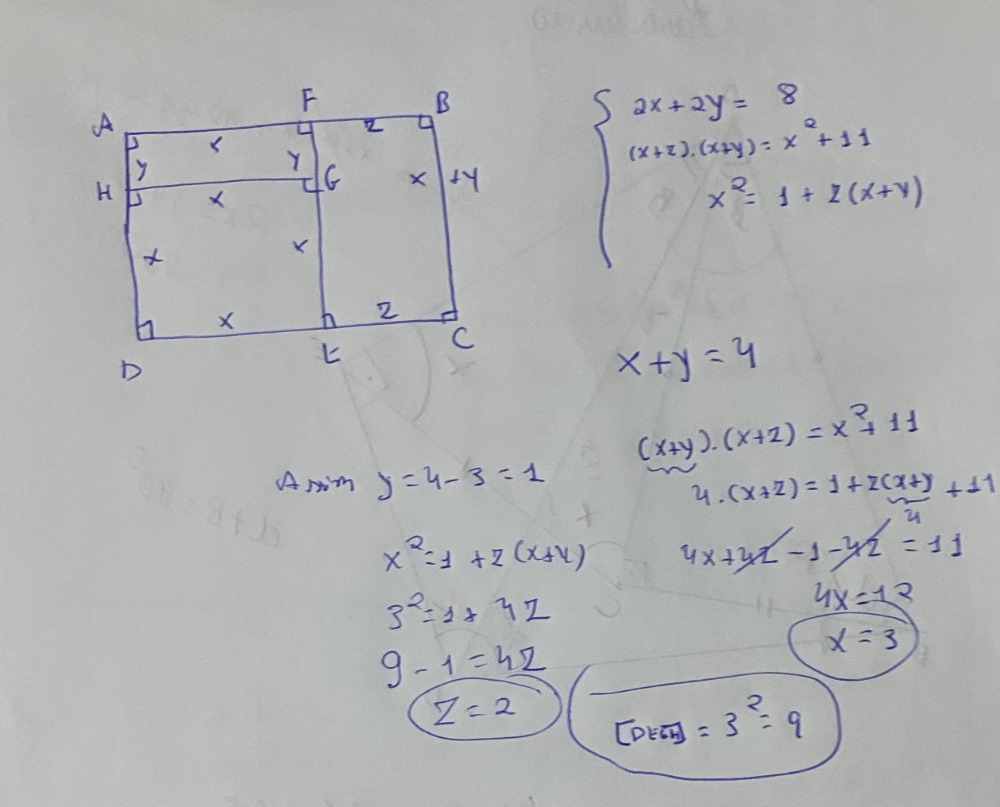 A F B
x z
y y
H G x +y
x
x x
x z
D E C
2x+2y = 8
(x+z).(x+y) = x²+11
x² = 1 + z(x+y)
x+y = 4
(x+y).(x+z) = x²+11
4.(x+z) = 1+z(x+y)+11
4
4x+4z-1-4z = 11
4x=12
x = 3
Assim y=4-3=1
x²=1+z(x+y)
3²=1+4z
9-1=4z
z=2
[DEGH] = 3²=9